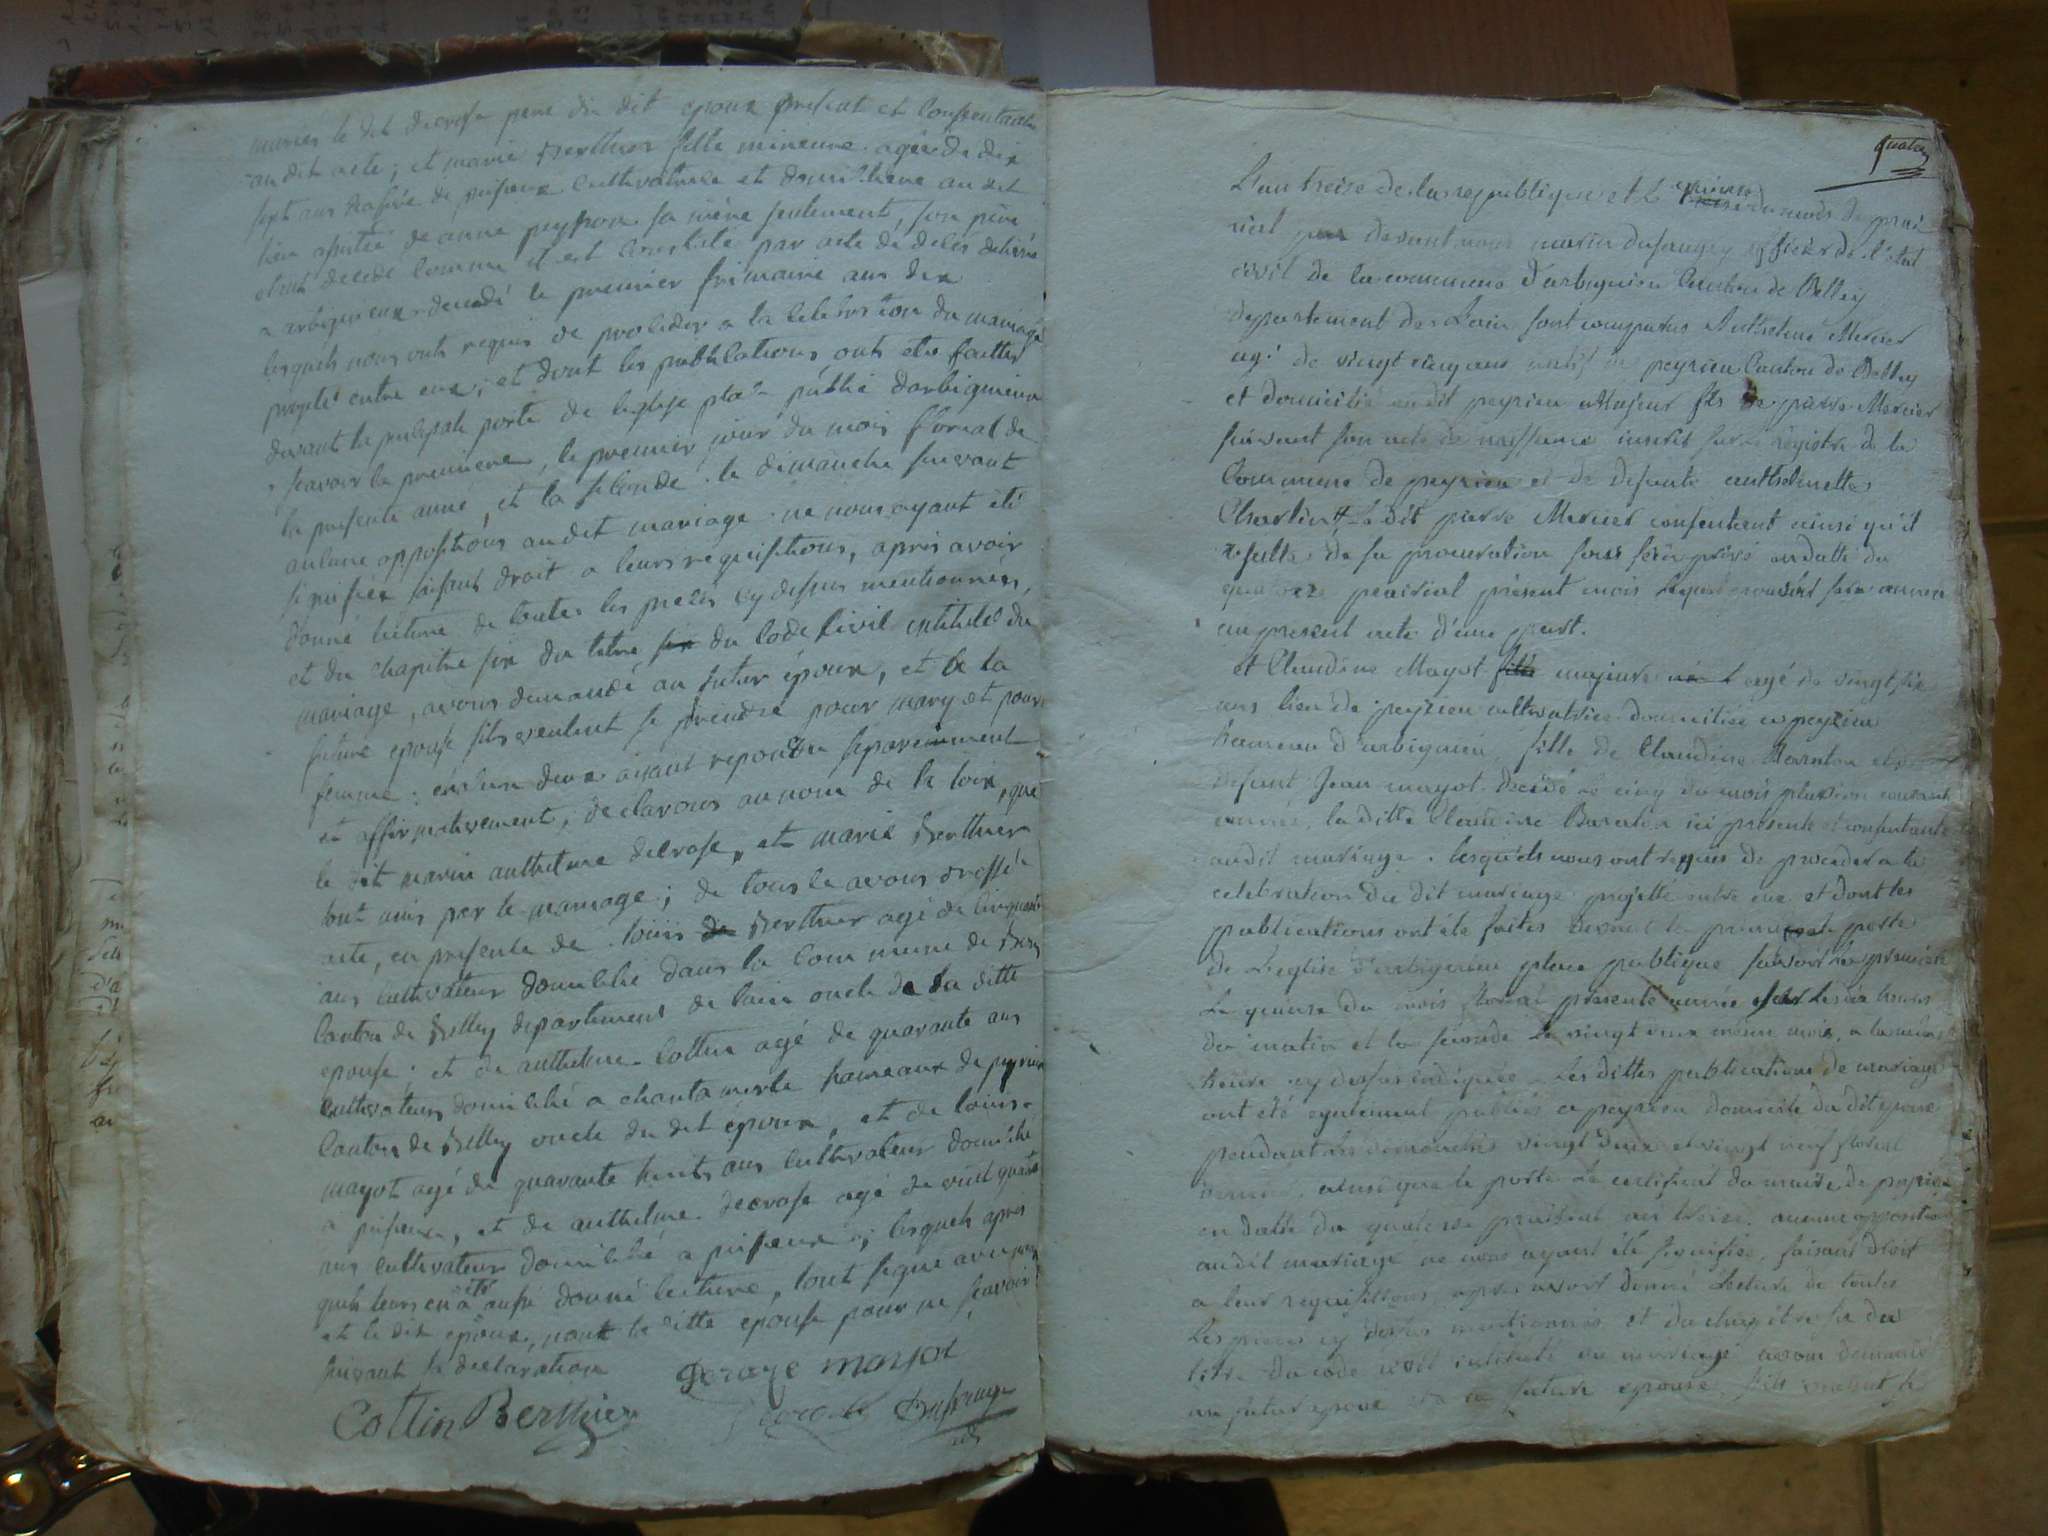 maries le dit decrose pere du dit epoux present et consentant
au dit acte; et marie Berthier fille mineure agée de dix
sept ans native de puisieux cultivatrice et domiciliée au dit
lieu assistée de anne peysson sa mère seulement, son père
etant decedé comme il est constaté par acte de déces delivré
a arbignieux decedé le premier frimaire ans dix
lesquels nous onts requis de proceder a la celebration du mariage
projeté entre eux; et dont les publications onts étés faittes
devant la principale porte de leglise place public darbignieux
scavoir la premiere, le premier jour du mois floreal de
la presente anné, et la seconde le dimanche suivant
aucune oppositions au dit mariage ne nous ayant été
signifiée faisant droit a leurs requisitions, apres avoir
donné lecture de toutes les pieces cy dessus mentionnées,
et du chapitre six du titre six du code civil intitulé du
mariage, avons demandé au futur époux, et a la
future epouse sils veulent se prendre pour mary et pour
femme; chacun deux aiant repondu separemment
et affirmativement; declarons au nom de la loix, que
le dit marin anthelme decrose, et marie Berthier
sont unis par le mariage; de tous ce avons dressé
acte, en presence de louis de Berthier agé de cinquante
ans cultivateur domicilié dans la commune de
Canton de Belley departement de lain oncle de la ditte
epouse; et de anthelme Collin agé de quarante ans
cultivateurs domicilié a chantemerle hameaux de peyrieu
Canton de Belley oncle du dit époux, et de louis
mayot agé de quarante huits ans cultivateur domicilié
a puisieux, et de anthelme decrose agé de vint quatre
ans cultivateur domicilié a puisieux; lesquels apres
quils leurs en a été aussi donné lecture, sont signé avec nous
et le dit époux, non la ditte epouse pour ne scavoir
suivant sa declaration
Collin Berthier mayot
Dufrange
quatre
L'an treise de la republique et le quinse du mois de prai
rial par devant nous marin dufrange officier de l'état
civil de la commune d'arbignieu Canton de Belley
departement de Lain sont comparus Anthelme Mercier
agé de vingt cinq ans natif de peyrieu Canton de Belley
et domicilié au dit peyrieu Majeur fils de pierre Mercier
suivant son acte de naissance inscrit sur le régistre de la
Commune de peyrieu et de defunte anthelmette
Charlin Le dit pierre Mercier consentant ainsi qu'il
résulte de sa procuration sous sein privé en datte du
quatorze prairial présent mois
au présent acte d'une part.
et Claudine Mayot fille majeure agé de vingt six
ans lieu de peyrieu cultivatrice domiciliée a peyzieu
hameau d'arbignieu, fille de Claudine Baraton et
defunt Jean mayot decedé le cinq du mois pluviose
année, la ditte Claudine Baraton ici présente et consentante
audit mariage. lesquels nous ont requis de proceder a la
celebration du dit mariage projetté entre eux et dont les
publications ont été faites devant la principale porte
de L'eglise d'arbignieu place publique savoir la première
Le quinse du mois floréal présente année
du matin et la seconde le vingt deux même mois, a la même
heure cy dessus indiquée. Les dittes publications de mariage
ont été egalement publiés a peyrieu domicile du dit epoux
pendant les dimanches vingt deux et vingt neuf floréal
dernier, ainsi que le porte le certificat du maire de peyrieu
en datte du quatorse prairial an treise. aucune opposition
audit mariage ne nous ayant été signifiée, faisant droit
a leur requisitions, apres avoir donné lecture de toutes
Les pieces cy dessus mentionnés et du chapitre six du
titre du code civil intitulé du mariage avons demandé
au futur epoux et a la future epouse, s'ils veulent se